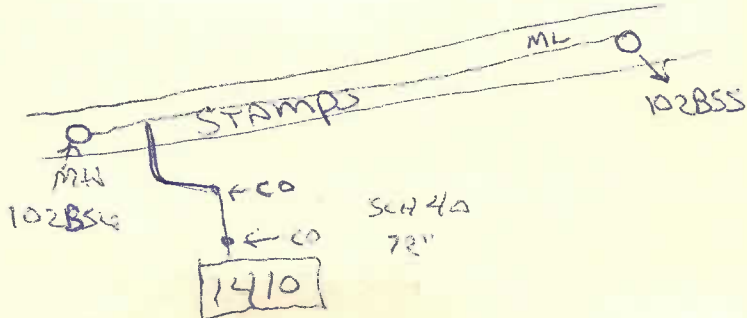 ML
102B55
STAMPS
MH
102B56
← CO
SCH 40
← CO
72"
1410